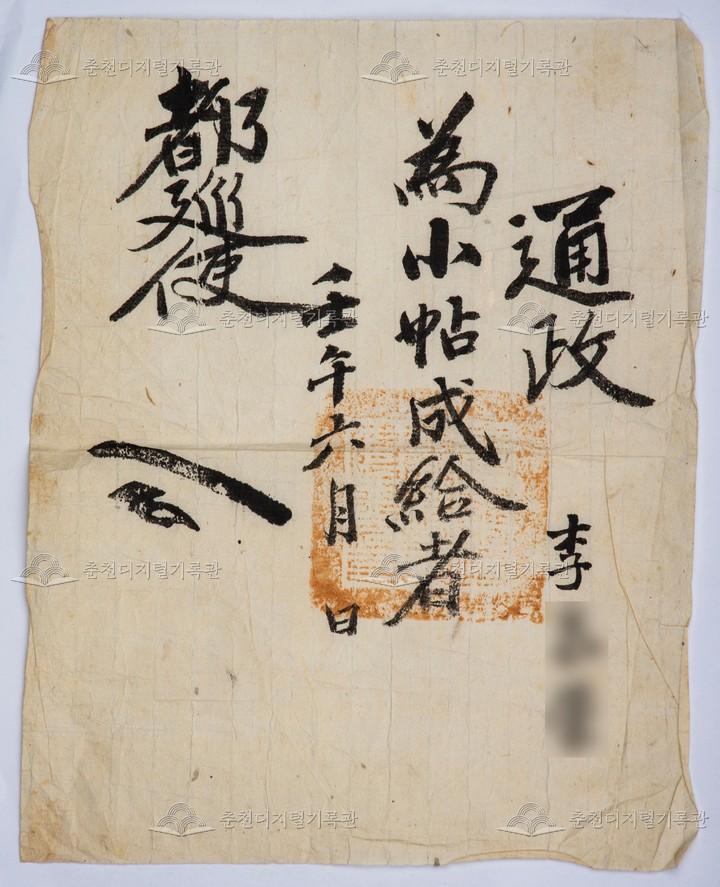 通政 李
為小帖成給者
壬午六月 日
都巡使
춘천디지털기록관
춘천디지털기록관
춘천디지털기록관
춘천디지털기록관
춘천디지털기록관
춘천디지털기록관
춘천디지털기록관
춘천디지털기록관